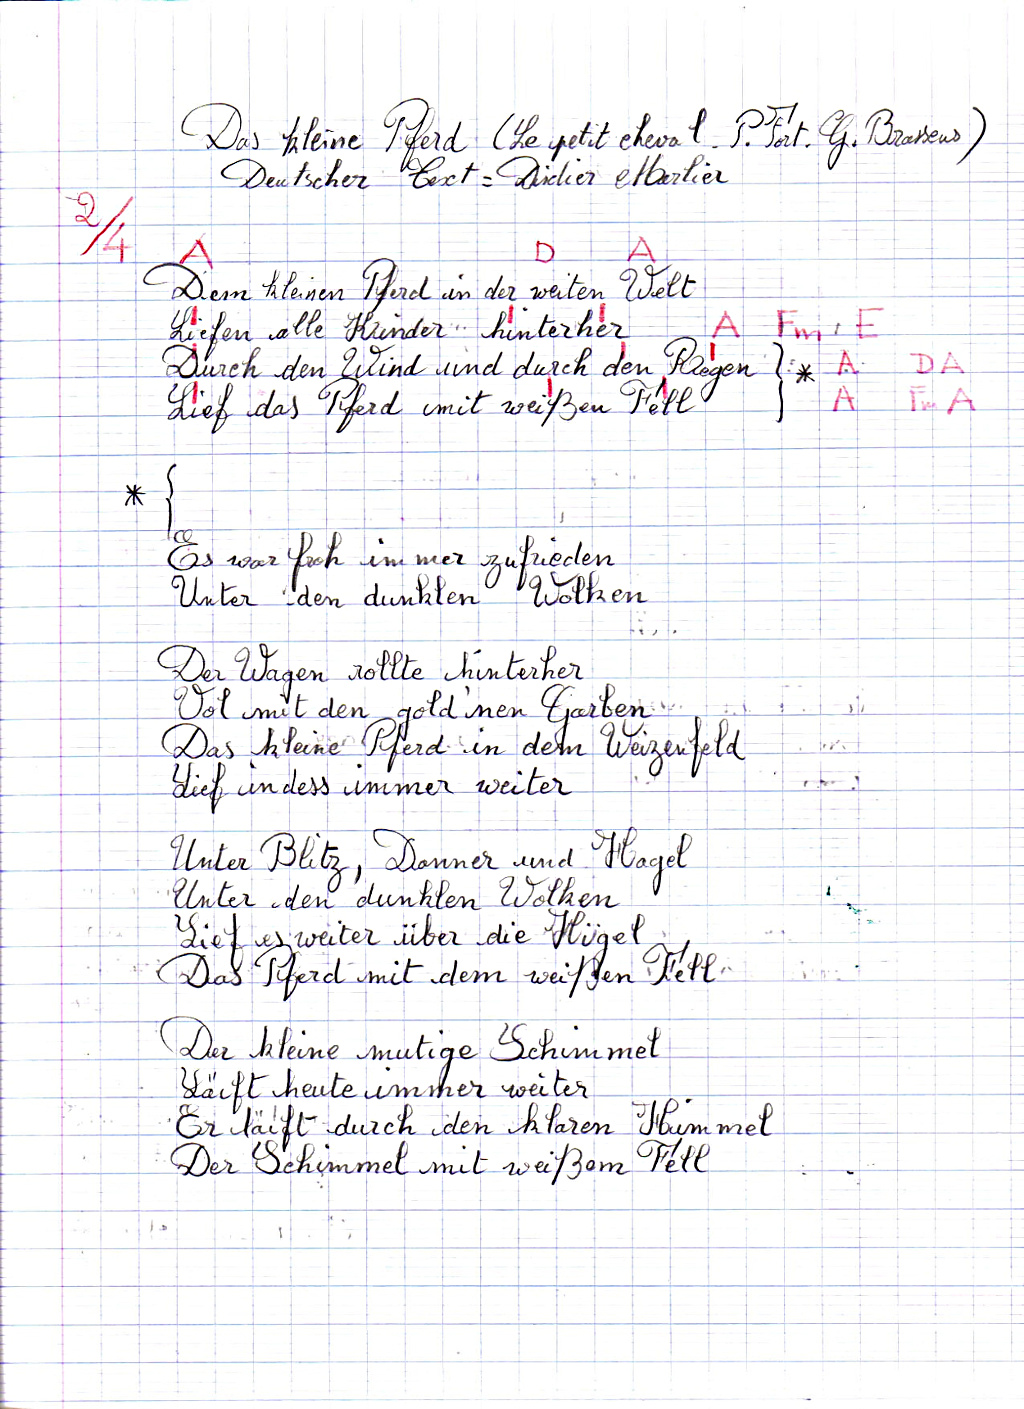 Das kleine Pferd (Le petit cheval - P. Fort. G. Brassens)
Deutscher Text = Didier Marlier
2/4
A D A
Dem kleinen Pferd in der weiten Welt
Liefen alle Kinder hinterher A Fm E
Durch den Wind und durch den Regen } * A D A
Lief das Pferd mit weißen Fell A Fm A
* {
Es war froh immer zufrieden
Unter den dunklen Wolken
Der Wagen rollte hinterher
Vol mit den gold'nen Garben
Das kleine Pferd in dem Weizenfeld
Lief indess immer weiter
Unter Blitz, Donner und Hagel
Unter den dunklen Wolken
Lief es weiter über die Hügel
Das Pferd mit dem weißen Fell
Der kleine mutige Schimmel
Läift heute immer weiter
Er läift durch den klaren Himmel
Der Schimmel mit weißem Fell